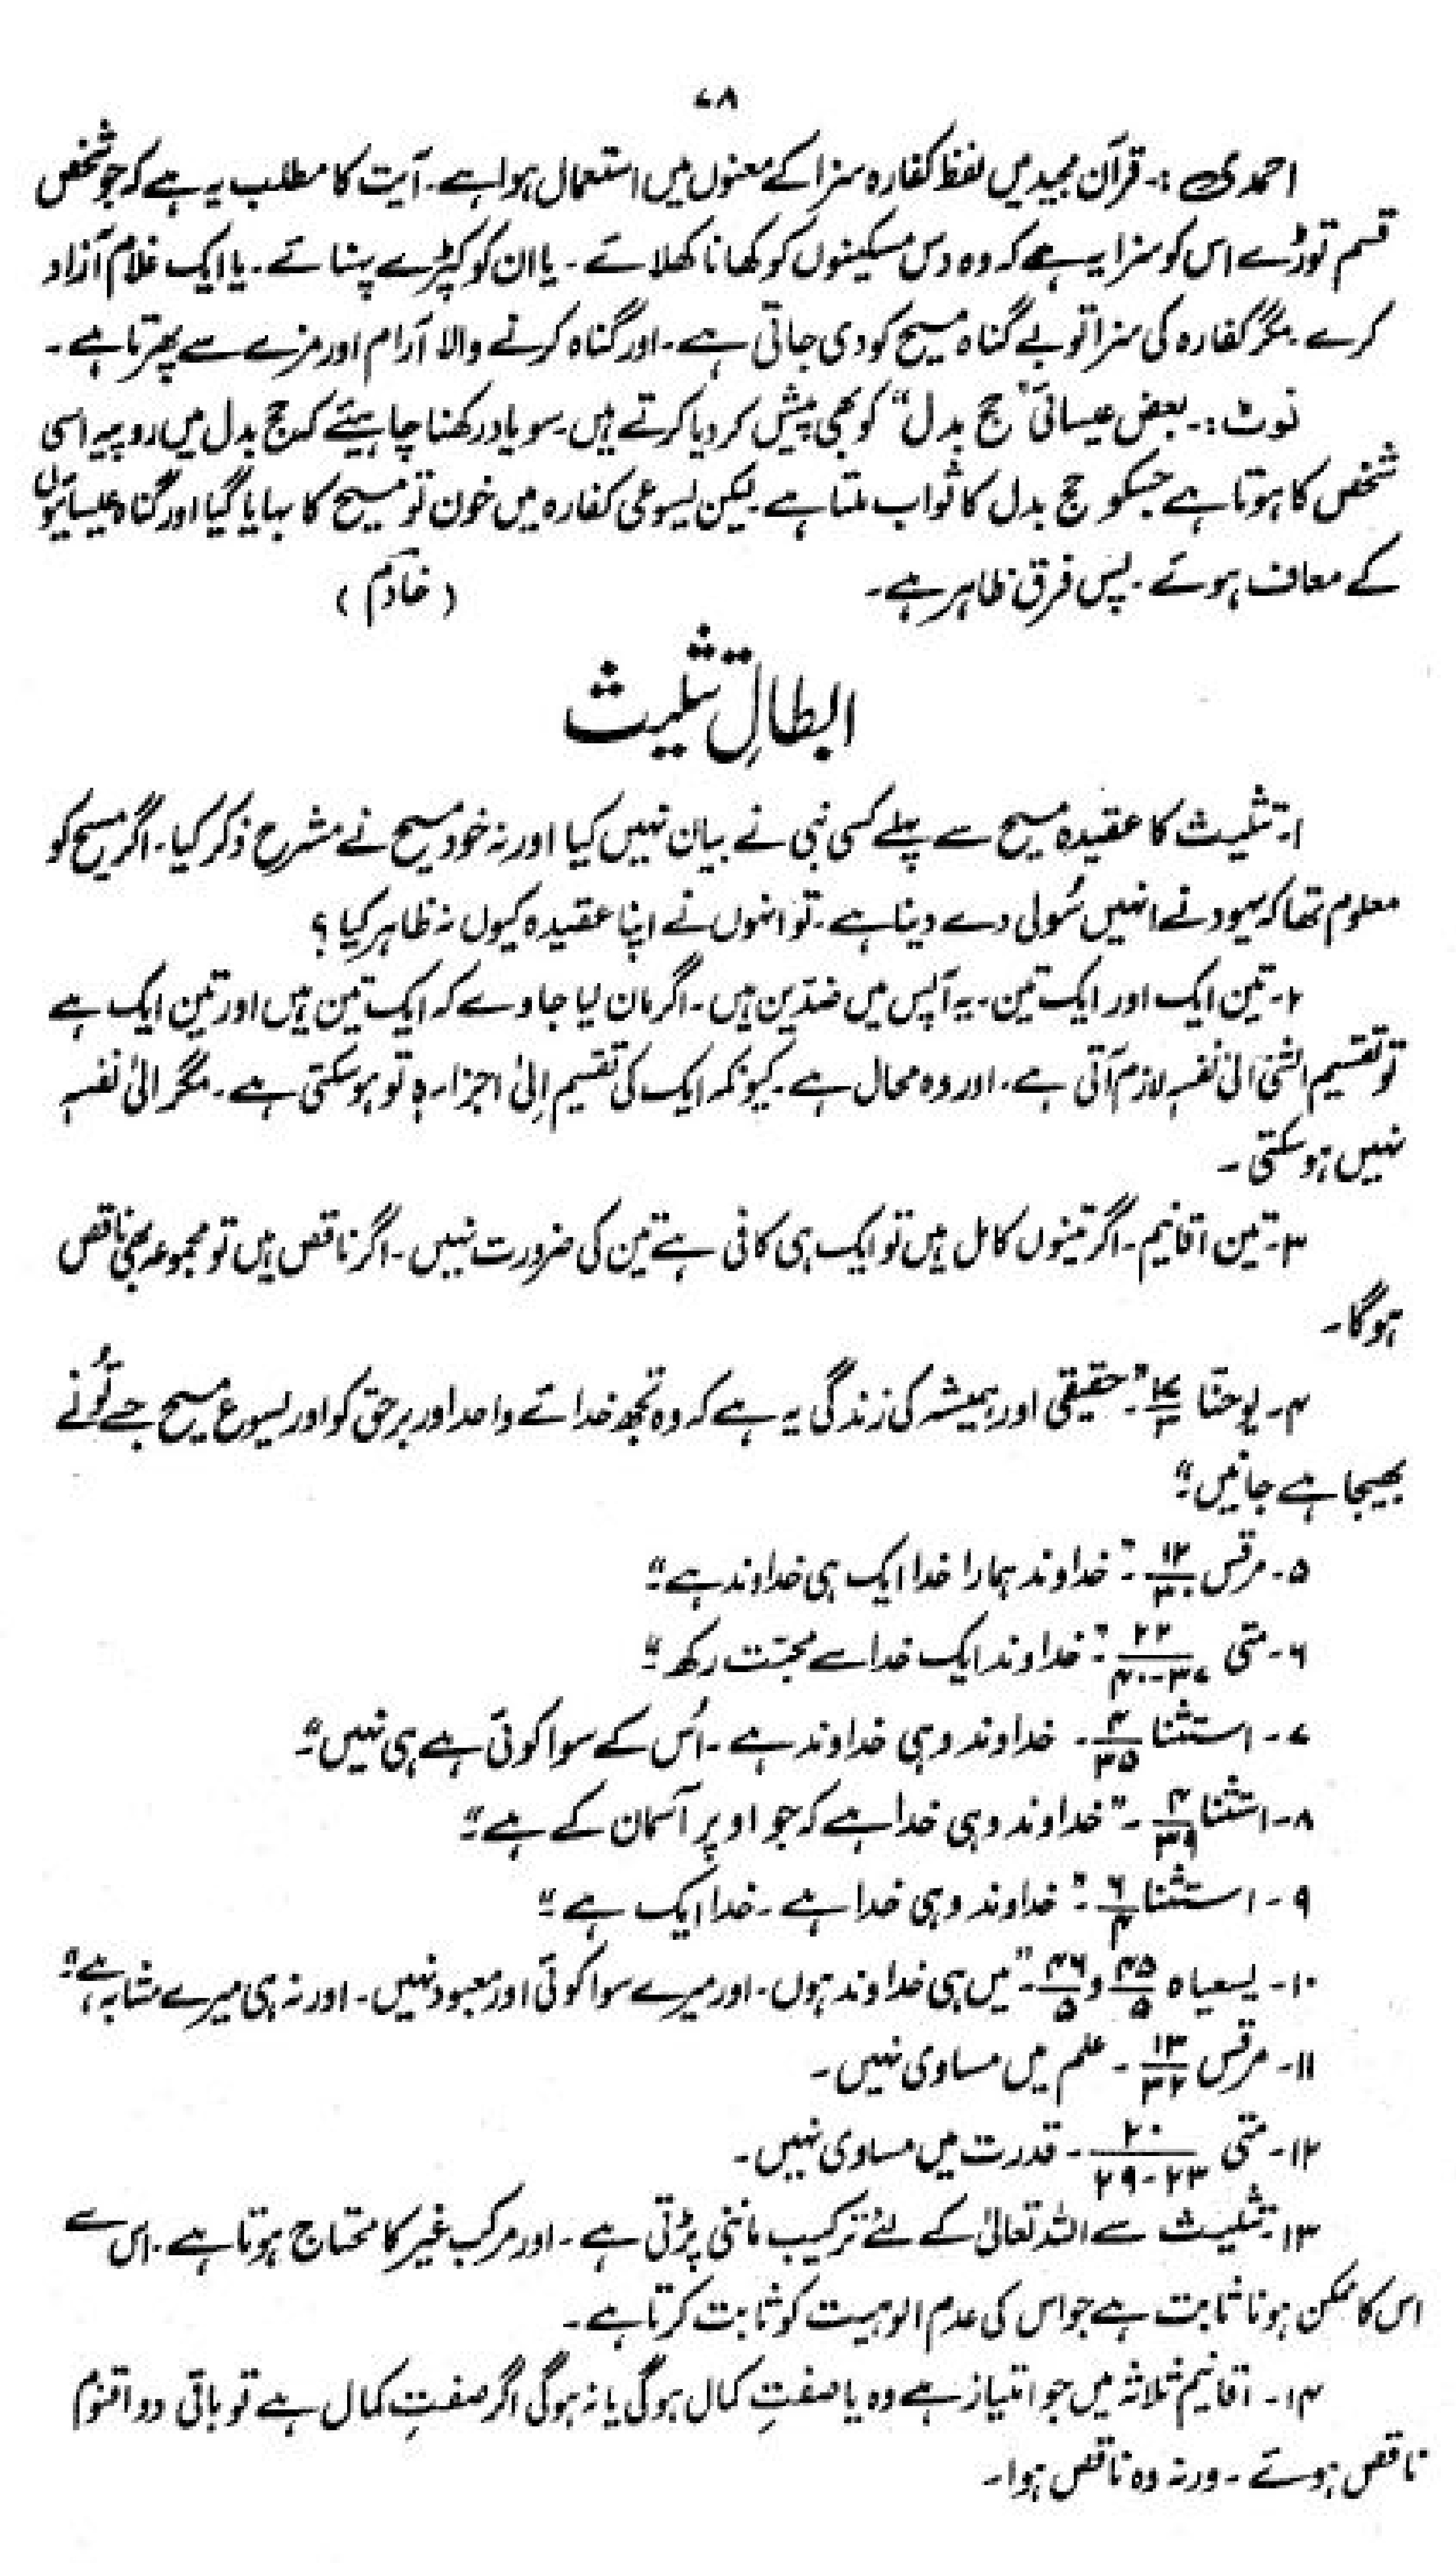 ۷۸
احمدی :۔ قرآن مجید میں لفظ کفارہ سزا کے معنوں میں استعمال ہوا ہے۔ آیت کا مطلب یہ ہے کہ جو شخص
قسم توڑے اس کو سزا یہ ہے کہ وہ دس مسکینوں کو کھانا کھلائے۔ یا ان کو کپڑے پہنائے۔ یا ایک غلام آزاد
کرے۔ مگر کفارہ کی سزا تو بے گناہ مسیح کو دی جاتی ہے۔ اور گناہ کرنے والا آرام اور مزے سے پھرتا ہے۔
نوٹ :۔ بعض عیسائی "حج بدل" کو بھی پیش کر دیا کرتے ہیں۔ سو یاد رکھنا چاہیئے کہ حج بدل میں روپیہ اسی
شخص کا ہوتا ہے جسکو حج بدل کا ثواب ملتا ہے۔ لیکن یسوعی کفارہ میں خون تو مسیح کا بہایا گیا اور گناہ عیسائیوں
کے معاف ہوئے۔ پس فرق ظاہر ہے۔ (خادم)
ابطالِ تثلیث
۱۔ تثلیث کا عقیدہ مسیح سے پہلے کسی نبی نے بیان نہیں کیا اور نہ خود مسیح نے مشرح ذکر کیا۔ اگر مسیح کو
معلوم تھا کہ یہود نے انہیں سُولی دے دینا ہے۔ تو انہوں نے اپنا عقیدہ کیوں نہ ظاہر کیا؟
۲۔ تین ایک اور ایک تین۔ یہ آپس میں ضدّین ہیں۔ اگر مان لیا جاوے کہ ایک تین ہیں اور تین ایک ہے
تو تقسیم الشئ الیٰ نفسہٖ لازم آتی ہے۔ اور وہ محال ہے۔ کیونکہ ایک کی تقسیم اِلیٰ اجزاءہٖ تو ہو سکتی ہے۔ مگر الیٰ نفسہٖ
نہیں ہو سکتی۔
۳۔ تین اقانیم۔ اگر تینوں کامل ہیں تو ایک ہی کافی ہے تین کی ضرورت نہیں۔ اگر ناقص ہیں تو مجموعہ بھی ناقص
ہوگا۔
۴۔ یوحنّا ۱۷/۳۔ "حقیقی اور ہمیشہ کی زندگی یہ ہے کہ وہ تجھ خدائے واحد اور برحق کو اور یسوع مسیح جسے تُو نے
بھیجا ہے جانیں۔"
۵۔ مرقس ۱۲/۳۰۔ "خداوند ہمارا خدا ایک ہی خداوند ہے۔"
۶۔ متی ۲۲/۳۷-۴۰۔ "خداوند ایک خدا سے محبّت رکھ۔"
۷۔ استثنا ۴/۳۵۔ خداوند وہی خداوند ہے۔ اُس کے سوا کوئی ہے ہی نہیں۔"
۸۔ استثنا ۴/۳۹۔ "خداوند وہی خدا ہے کہ جو اوپر آسمان کے ہے۔"
۹۔ استثنا ۶/۴۔ "خداوند وہی خدا ہے۔ خدا ایک ہے۔"
۱۰۔ یسعیاہ ۴۵/۵ و ۴۶/۵۔ "میں ہی خداوند ہوں۔ اور میرے سوا کوئی اور معبود نہیں۔ اور نہ ہی میرے مشابہ ہے۔"
۱۱۔ مرقس ۱۳/۳۲۔ علم میں مساوی نہیں۔
۱۲۔ متی ۲۰/۲۳-۲۹۔ قدرت میں مساوی نہیں۔
۱۳۔ تثلیث سے اللہ تعالیٰ کے لئے ترکیب ماننی پڑتی ہے۔ اور مرکب غیر کا محتاج ہوتا ہے۔ اس سے
اس کا ممکن ہونا ثابت ہے جو اس کی عدم الوہیت کو ثابت کرتا ہے۔
۱۴۔ اقانیم ثلاثہ میں جو امتیاز ہے وہ یا صفتِ کمال ہوگی یا نہ ہوگی اگر صفتِ کمال ہے تو باقی دو اقنوم
ناقص ہوئے۔ ورنہ وہ ناقص ہوا۔